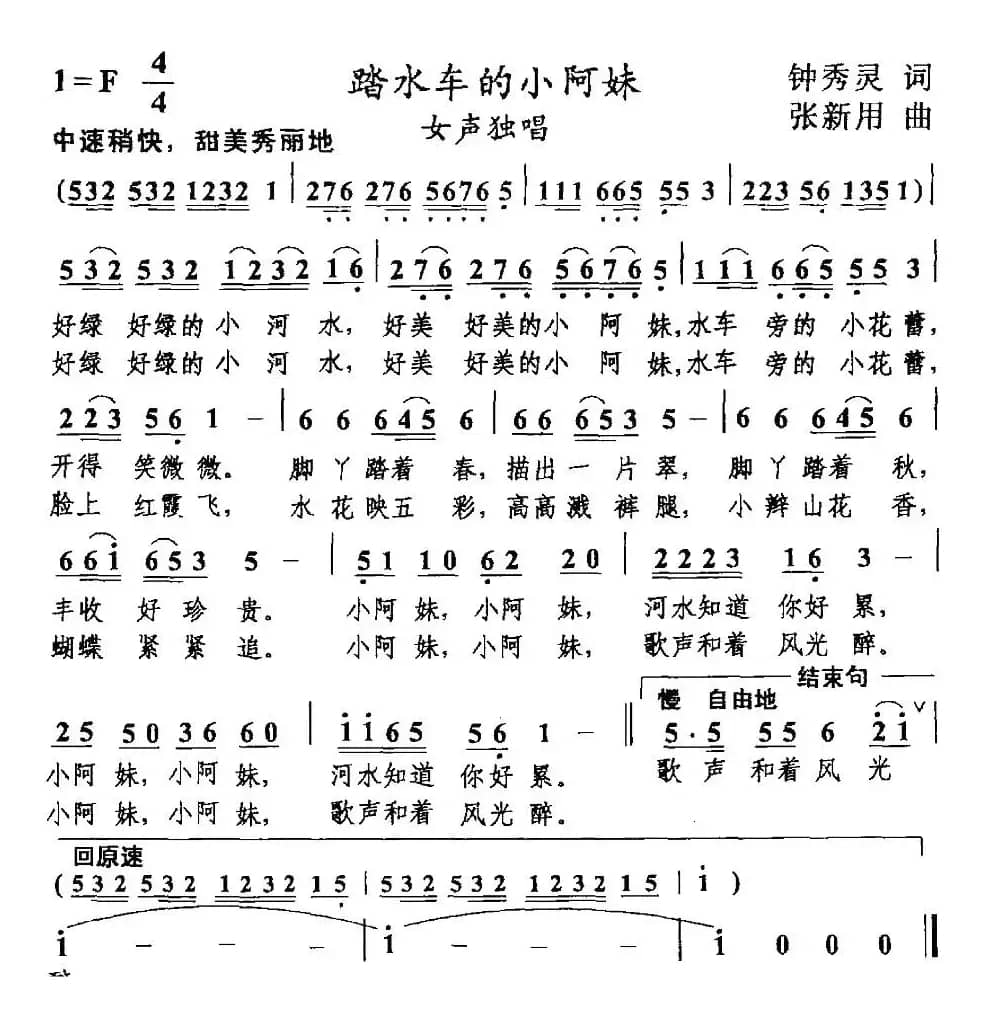 1=F 4/4 踏水车的小阿妹 钟秀灵 词
女声独唱 张新用 曲
中速稍快，甜美秀丽地
(532 532 1232 1 | 276 276 5676 5 | 111 665 55 3 | 223 56 1351)|
532 532 1232 16 | 276 276 5676 5 | 111 665 55 3 |
好绿 好绿的小 河 水，好美 好美的小 阿 妹,水车 旁的 小花蕾，
好绿 好绿的小 河 水，好美 好美的小 阿 妹,水车 旁的 小花蕾，
223 56 1 － | 6 6 645 6 | 66 653 5 － | 6 6 645 6 |
开得 笑微微。 脚丫踏着 春，描出一 片翠，脚丫踏着 秋，
脸上 红霞飞， 水花映五 彩，高高溅 裤腿，小辫山花 香，
66i 653 5 － | 51 10 62 20 | 2223 16 3 － |
丰收 好珍 贵。 小阿 妹，小阿 妹， 河水知道 你好 累，
蝴蝶 紧紧 追。 小阿 妹，小阿 妹， 歌声和着 风光 醉。
结束句
慢 自由地
25 50 36 60 | ii65 56 1 － ‖ 5·5 55 6 2i ∨|
小阿 妹，小阿 妹， 河水知道 你好 累。 歌 声 和着 风 光
小阿 妹，小阿 妹， 歌声和着 风光 醉。
回原速
(532 532 1232 15 | 532 532 1232 15 | i)
i － － － | i － － － | i 0 0 0 ‖